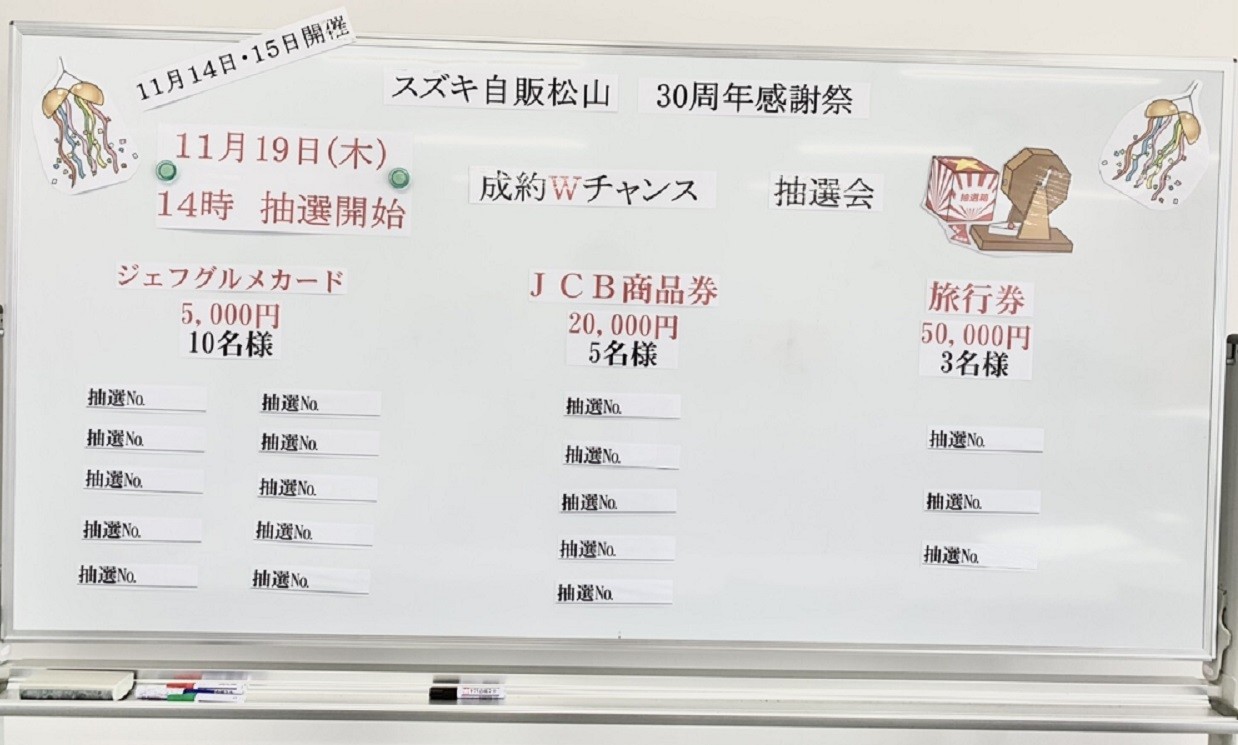 11月14日・15日開催
スズキ自販松山 30周年感謝祭
11月19日(木)
14時 抽選開始
成約Wチャンス 抽選会
抽選箱
ジェフグルメカード
5,000円
10名様
抽選No.
抽選No.
抽選No.
抽選No.
抽選No.
抽選No.
抽選No.
抽選No.
抽選No.
抽選No.
JCB商品券
20,000円
5名様
抽選No.
抽選No.
抽選No.
抽選No.
抽選No.
旅行券
50,000円
3名様
抽選No.
抽選No.
抽選No.